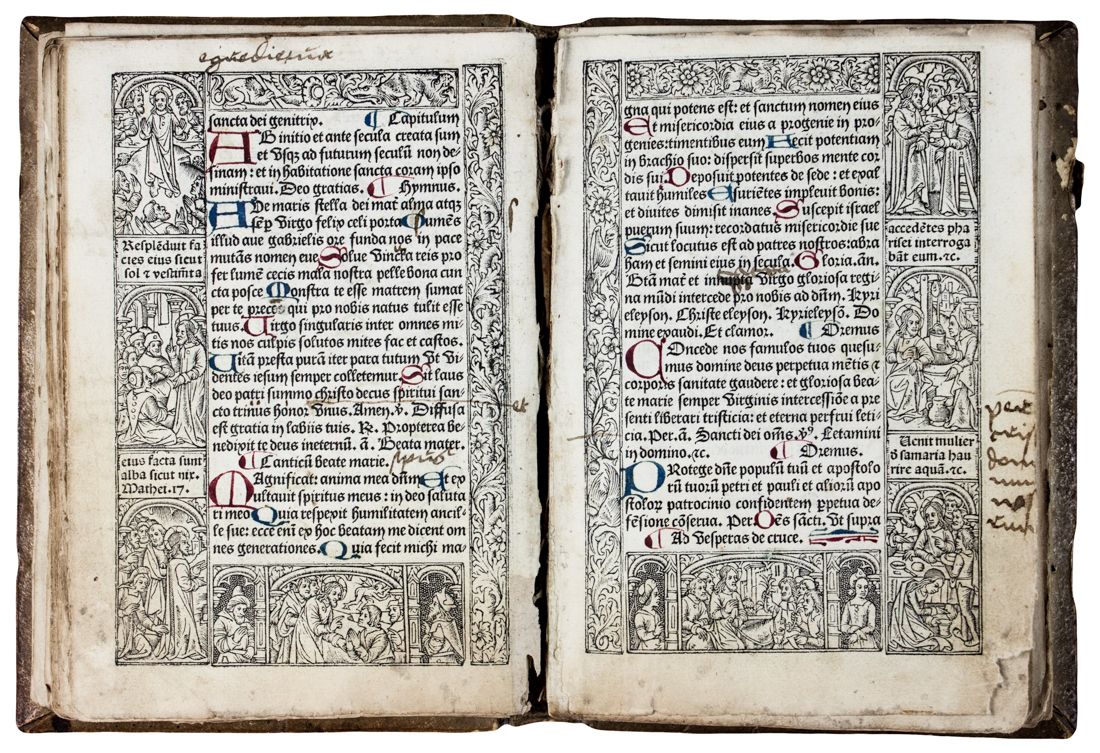 egredietur
sancta dei genitrix. ¶ Capitulum
AB initio et ante secula creata sum
et vsq̃ ad futurum seculũ non de-
sinam: et in habitatione sancta coram ipso
ministraui. Deo gratias. ¶ Hymnus.
AVe maris stella dei mat̃ alma atqȝ
sẽp virgo felix celi porta Sumẽs
illud aue gabrielis ore funda nos in pace
mutãs nomen eue Solue vincła reis pro
fer lumẽ cecis mala nostra pelle bona cun
cta posce Monstra te esse matrem sumat
per te preces qui pro nobis natus tulit esse
tuus. Virgo singularis inter omnes mi
tis nos culpis solutos mites fac et castos.
Vitã presta purã iter para tutum vt vi
dentes iesum semper colletemur. Sit laus
deo patri summo christo decus spiritui san
cto trinus honor vnus. Amen. ꝟ. Diffusa
est gratia in labiis tuis. R. Propterea be-
nedixit te deus ineternũ. ã. Beata mater.
¶ Canticũ beate marie.
MAgnificat: anima mea dñm Et ex
ultauit spiritus meus: in deo saluta
ri meo Quia respexit humilitatem ancil-
le sue: ecce eni ex hoc beatam me dicent om
nes generationes. Quia fecit michi ma-
Resplẽduit fa
cies eius sicut
sol ⁊ vestimta
eius facta sunt
alba sicut nix.
Mathei. 17.
et
gna qui potens est: et sanctum nomen eius
Et misericordia eius a progenie in pro-
genies: timentibus eum Fecit potentiam
in brachio suo: dispersit superbos mente cor
dis sui Deposuit potentes de sede: et exal
tauit humiles Esuriẽtes impleuit bonis:
et diuites dimisit inanes. Suscepit israel
puerum suum: recordatus misericordie sue
Sicut locutus est ad patres nostros: abra
ham et semini eius in secula. Gloria. ãn.
Btã mat̃ et innupta virgo gloriosa regi
na mũdi intercede pro nobis ad dñm. Kyri
eleyson. Christe eleyson. Kyrieleysõ. Do
mine exaudi. Et clamor. ¶ Oremus
COncede nos famulos tuos quesu-
mus domine deus perpetua mẽtis ⁊
corporis sanitate gaudere: et gloriosa bea
te marie semper virginis intercessiõe a pre
senti liberari tristicia: et eterna perfrui leti
cia. Per. ã. Sancti dei oñis. ꝟ. Letamini
in domino. ⁊c. ¶ Oremus.
PRotege dñe populũ tuũ et apostolo
rũ tuorũ petri et pauli et aliorũ apo
stolorȝ patrocinio confidentem ꝑpetua de-
fẽsione cõserua. Per. Oẽs sãcti. Vt supra
¶ Ad vesperas de cruce.
accedẽtes pha
risei interroga
bãt eum. ⁊c.
Uenit mulier
ð samaria hau
rire aquã. ⁊c.